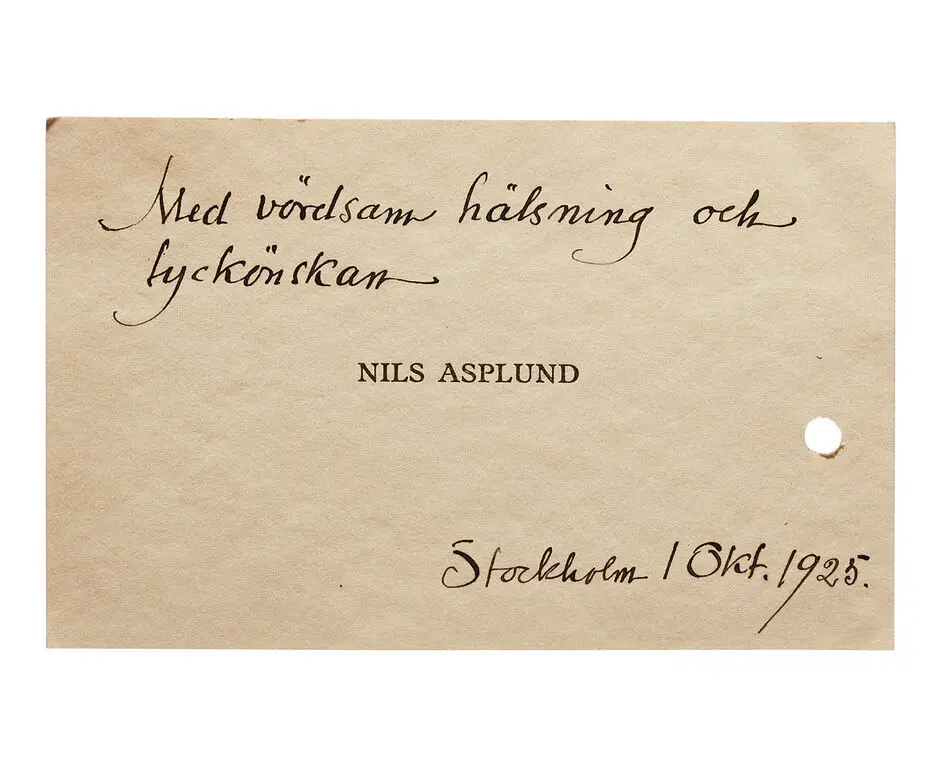 Med vördsam hälsning och
lyckönskan
NILS ASPLUND
Stockholm 1 Okt. 1925.